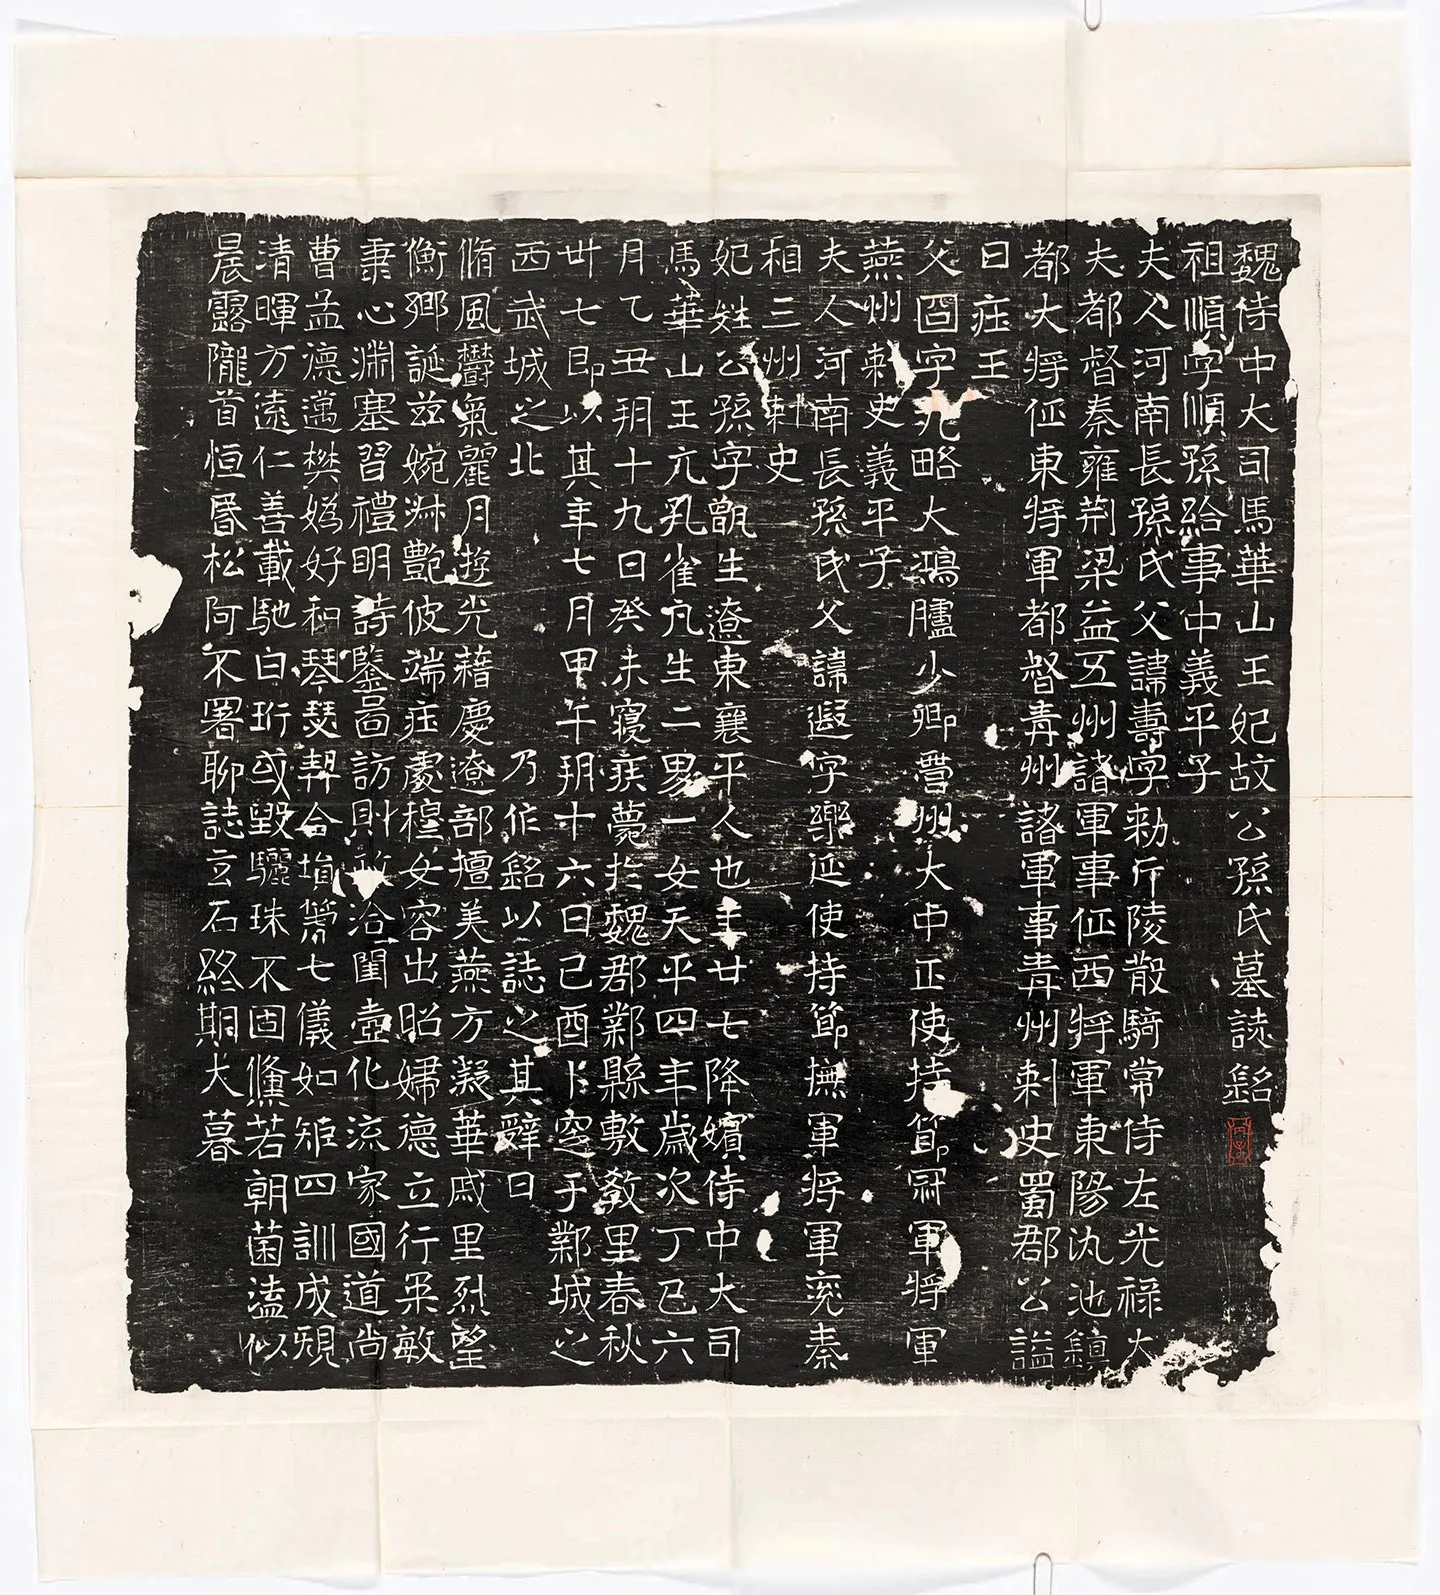 魏侍中大司馬華山王妃故公孫氏墓誌銘
祖順字順孫給事中義平子
夫人河南長孫氏父諱壽字勑斤陵散騎常侍左光祿大
夫都督秦雍荆梁益五州諸軍事征西將軍東陽仇池鎮
都大將征東將軍都督青州諸軍事青州刺史蜀郡公謚
曰莊王
父冏字九略大鴻臚少卿營州大中正使持節冠軍將軍
燕州刺史義平子
夫人河南長孫氏父諱遐字樂延使持節撫軍將軍兖秦
相三州刺史
妃姓公孫字甑生遼東襄平人也年廿七降嬪侍中大司
馬華山王亢孔雀凡生二男一女天平四年歲次丁巳六
月乙丑朔十九日癸未寢疾薨於魏郡鄴縣敷教里春秋
卅七即以其年七月甲午朔十六日己酉卜窆于鄴城之
西武城之北 乃作銘以誌之其辭曰
脩風欝氣麗月遊光藉慶遼部擅美燕方凝華戚里烈望
衡鄉誕茲婉淋艷彼端莊處穆女容出昭婦德立行柔敏
秉心淵塞習禮明詩鑒啚訪則洽閨壼化流家國道尚
曹孟德邁樊嬀好和琴瑟契合塤箎七儀如矩四訓成規
清暉方遠仁善載馳白珩或毀驪珠不固儵若朝菌溘似
晨露隴首恒昬松阿不署聊誌玄石終期大暮